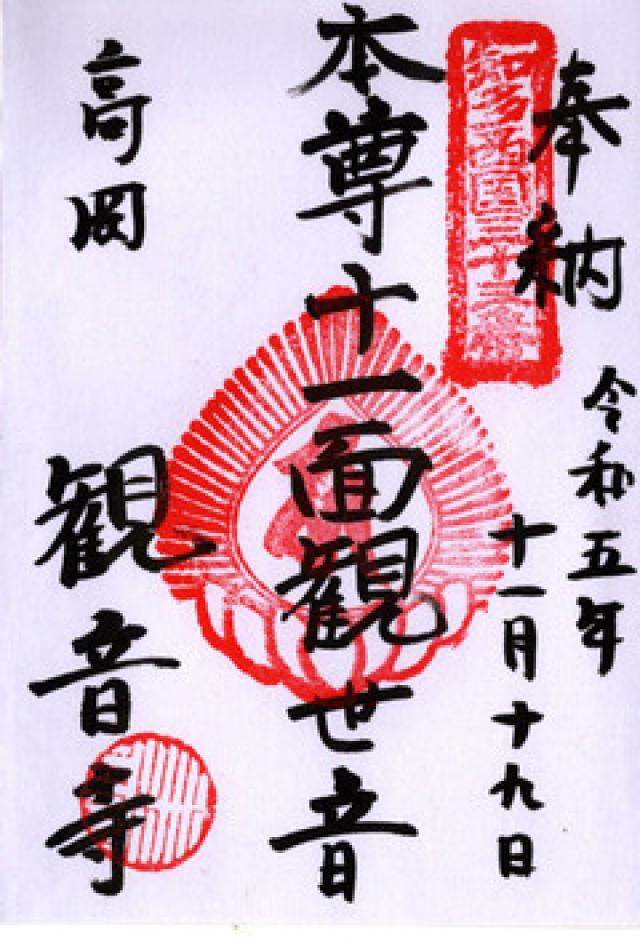 奉納
知多西国三十三
令和五年
十一月十九日
本尊十一面観世音
高岡
観音寺